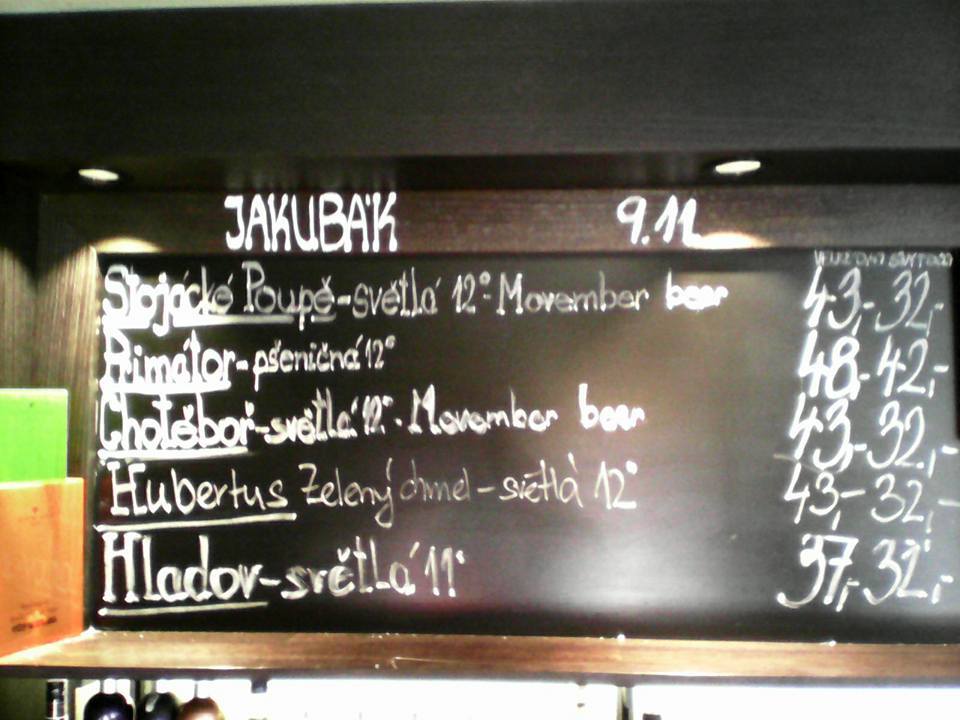 JAKUBÁK 9.11
Stojácké Poupě-světlá 12°-Movember beer 43,- 32,-
Primátor-pšeničná 12° 48,- 42,-
Chotěboř-světlá 12°-Movember beer 43,- 32,-
Hubertus Zelený chmel-světlá 12° 43,- 32,-
Hladov-světlá 11° 37,- 32,-